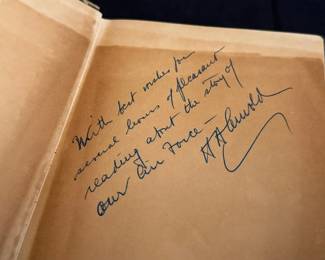 With best wishes for
several hours of pleasant
reading about the story of
our Air Force –
HHArnold